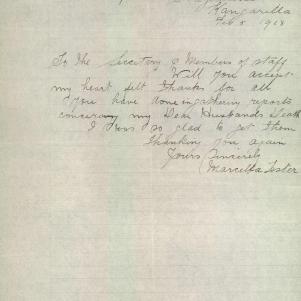 Kangarilla
Feb 5 1918
To The Secretary & Members of staff
Will you accept
my heart felt thanks for all
you have done in gathering reports
concerning my Dear Husbands Death
I was so glad to get them
thanking you again
Yours Sincerely
Marcella Foster